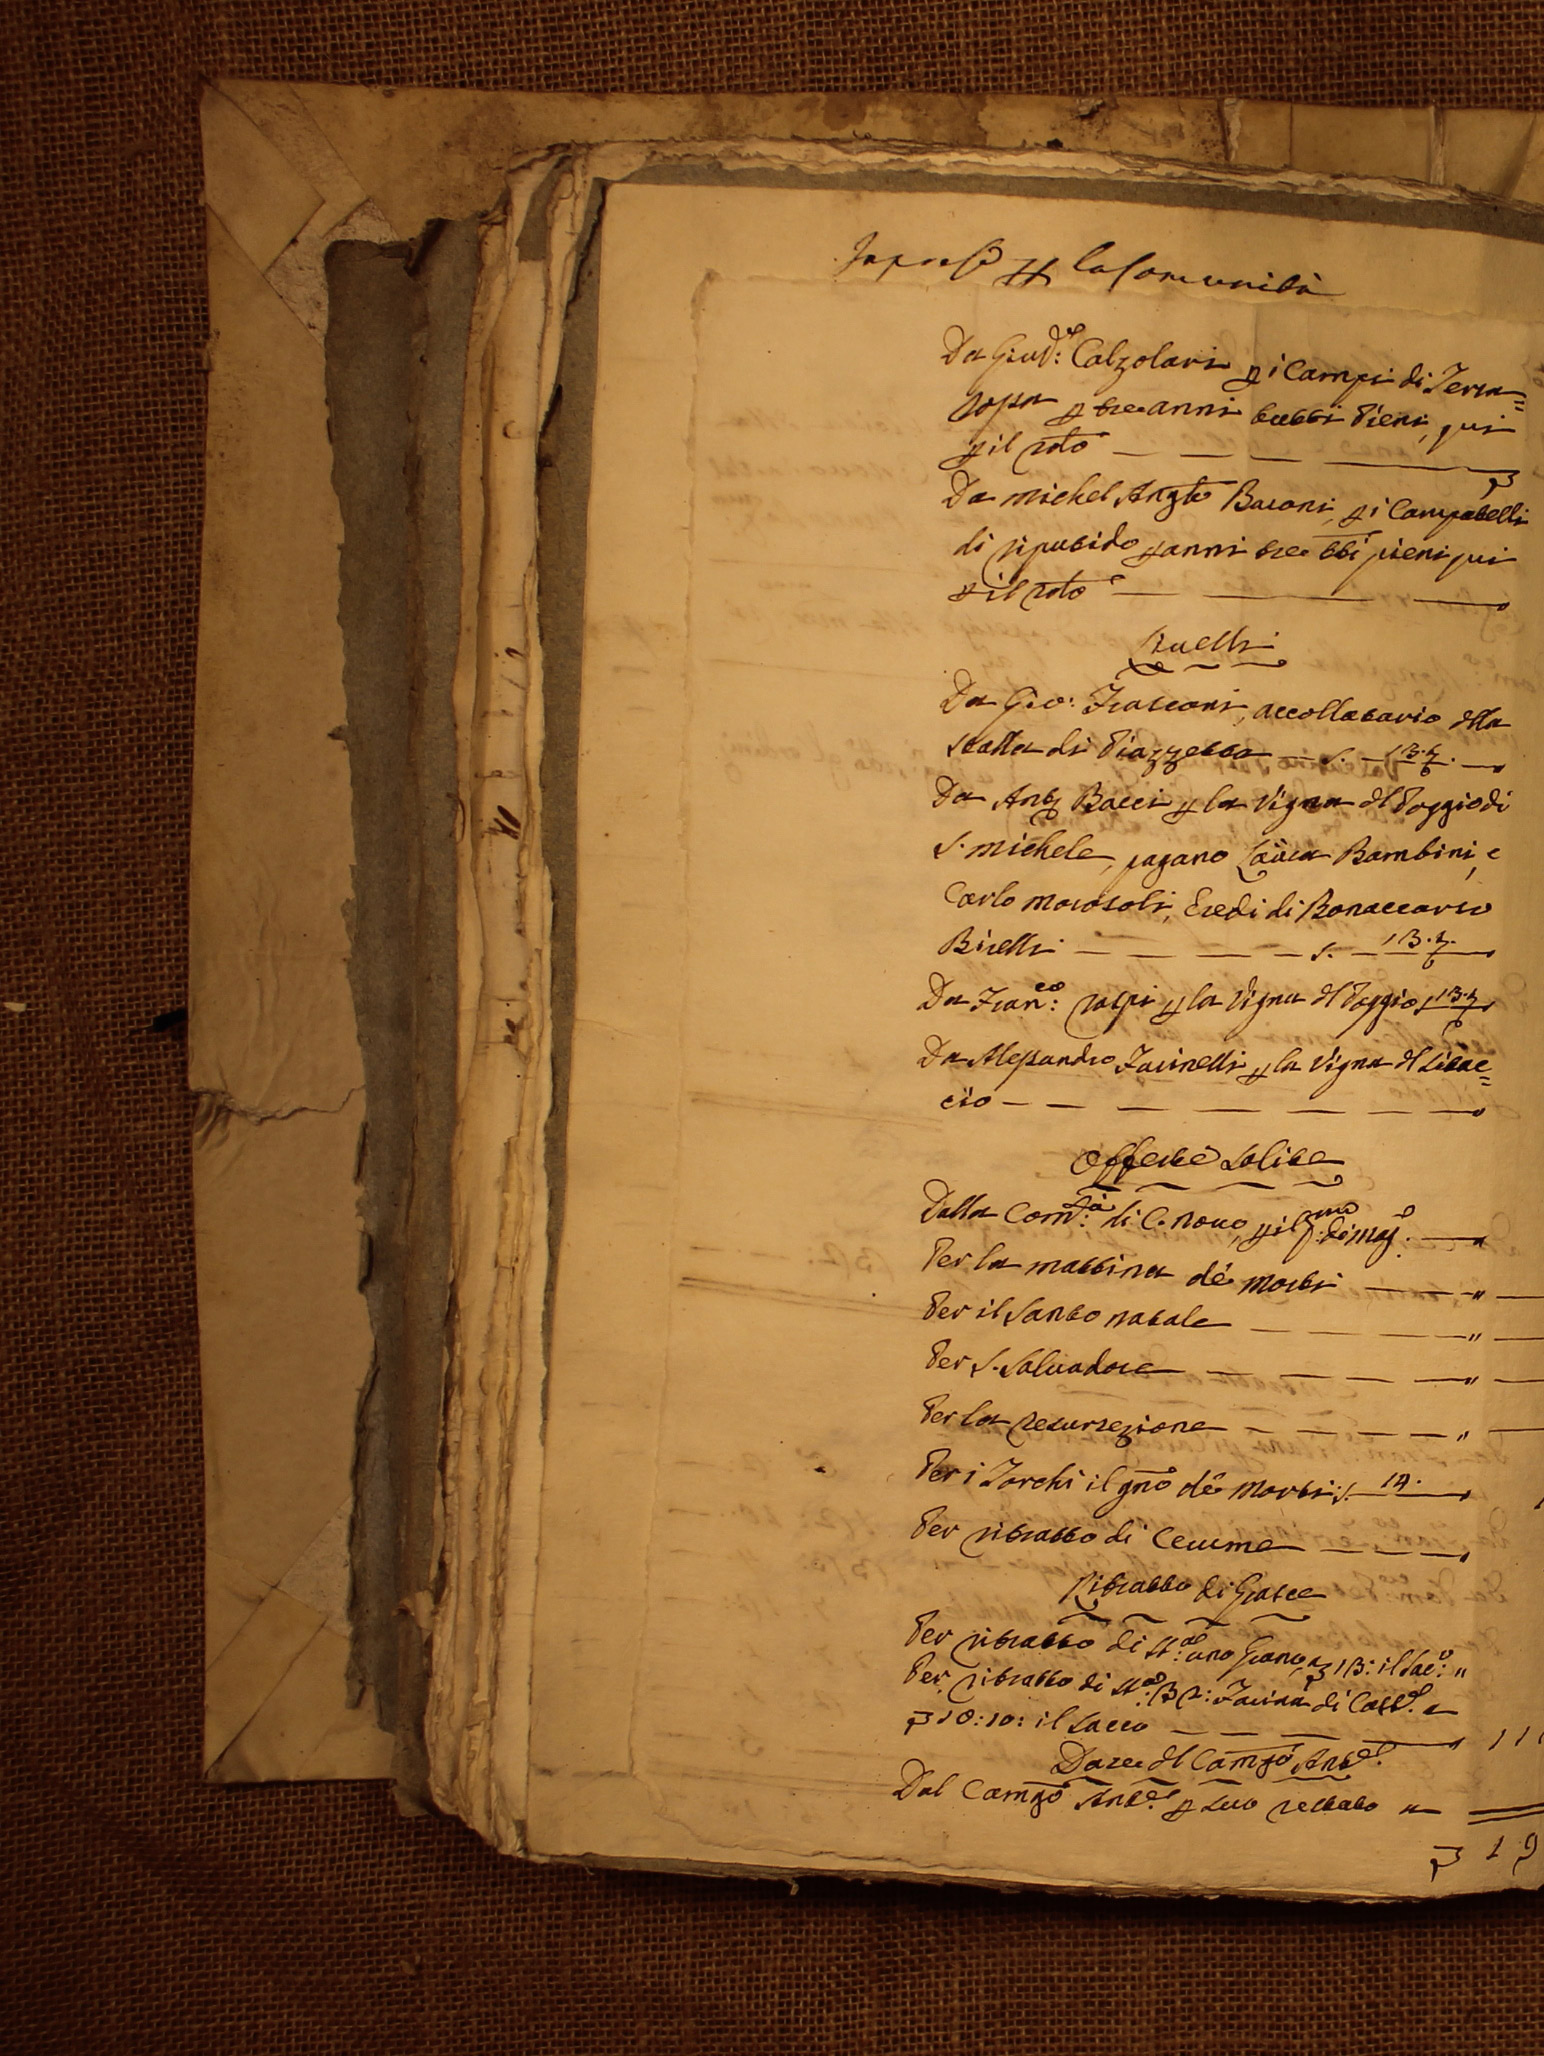 la Comunità
Da Giud:e Calzolari p i Campi di Terra=
rossa p tre anni tutti Pieni, qui
p il rōto
Da Michel Angłō Baroni, p i Campitelli
di p anni tre tti pieni qui
p il rōto
Livelli
Da Gio: Frasconi, accollatario dlla
stalla di Piazzetta — S. — 13.4.
Da Antº Bacci p la Vigna dl Poggio di
S. Michele, pagano Laüra Bambini, e
Carlo Morosoli, Eredi di Bonaccorso
Birelli — S. — 13.4.
Da Fran:co p la Vigna dl Poggio S 13.4
Da Alessandro Farinelli p la Vigna dl
cio
Offerte solite
Dalla Com:tà di C. novo, p il di Mag:o
Per la mattina de Morti "
Per il Santo natale "
Per S. Salvadore "
Per la resurrezione "
Per i Torchi il gnō de Morti S. 14.
Per ritratto di Cerume "
Ritratto di Grasce
Per ritratto di st:a uno Grano, a 13: il Sac:o "
Per ritratto di st:a 32: Farina di Cast:e a
10:10: il sacco 11
Dare dl Camgō Ant:e
Dal Camgō Ant:e p suo restato "
19